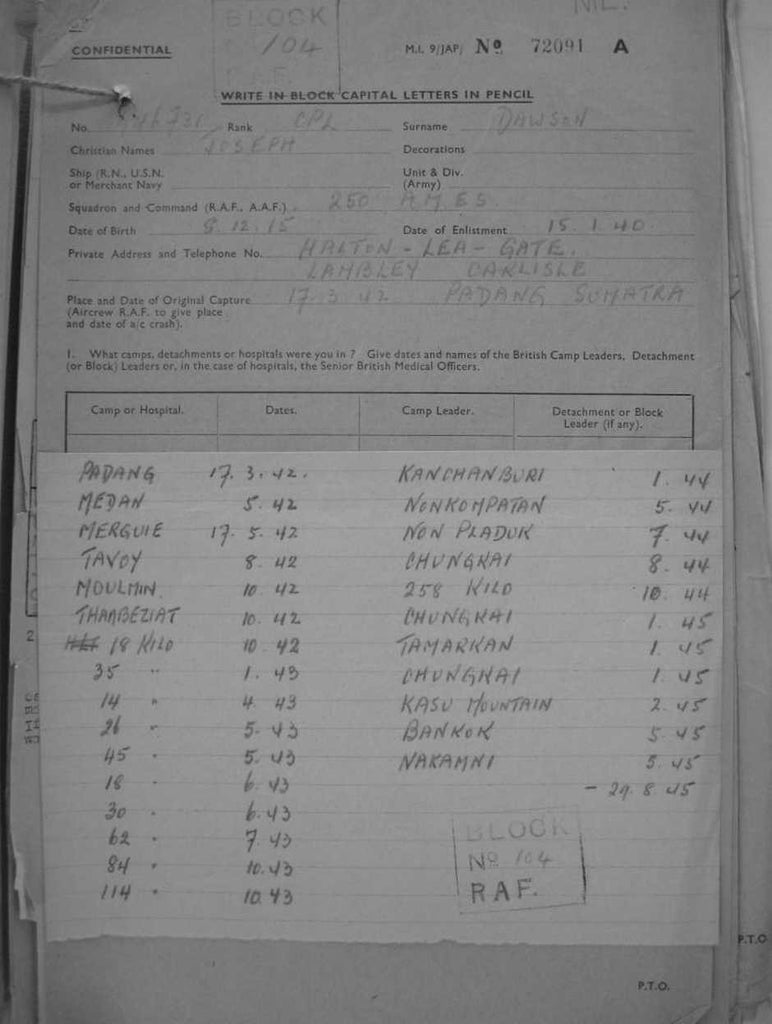 NIL.
BLOCK
104
RAF.
CONFIDENTIAL
M.I. 9/JAP/ No 72091 A
WRITE IN BLOCK CAPITAL LETTERS IN PENCIL
No. Rank CPL Surname DAWSON
Christian Names JOSEPH Decorations
Ship (R.N., U.S.N. Unit & Div.
or Merchant Navy (Army)
Squadron and Command (R.A.F., A.A.F.) 250 A.M.E.S
Date of Birth 8.12.15 Date of Enlistment 15.1.40.
Private Address and Telephone No. HALTON - LEA - GATE.
LAMBLEY CARLISLE
Place and Date of Original Capture 17.3.42 PADANG SUMATRA
(Aircrew R.A.F. to give place
and date of a/c crash).
1. What camps, detachments or hospitals were you in ? Give dates and names of the British Camp Leaders, Detachment
(or Block) Leaders or, in the case of hospitals, the Senior British Medical Officers.
Camp or Hospital. Dates. Camp Leader. Detachment or Block
Leader (if any).
PADANG 17.3.42. KANCHANBURI 1.44
MEDAN 5.42 NONKOMPATAN 5.44
MERGUIE 17.5.42 NON PLADUK 7.44
TAVOY 8.42 CHUNGKAI 8.44
MOULMIN. 10.42 258 KILO 10.44
THANBEZIAT 10.42 CHUNGKAI 1.45
18 KILO 10.42 TAMARKAN 1.45
35 " 1.43 CHUNGKAI 1.45
14 " 4.43 KASU MOUNTAIN 2.45
26 " 5.43 BANKOK 5.45
45 " 5.43 NAKAMNI 5.45
18 " 6.43 - 29.8.45
30 " 6.43
62 " 7.43
84 " 10.43
114 " 10.43
BLOCK
No 104
RAF.
P.T.O
P.T.O.